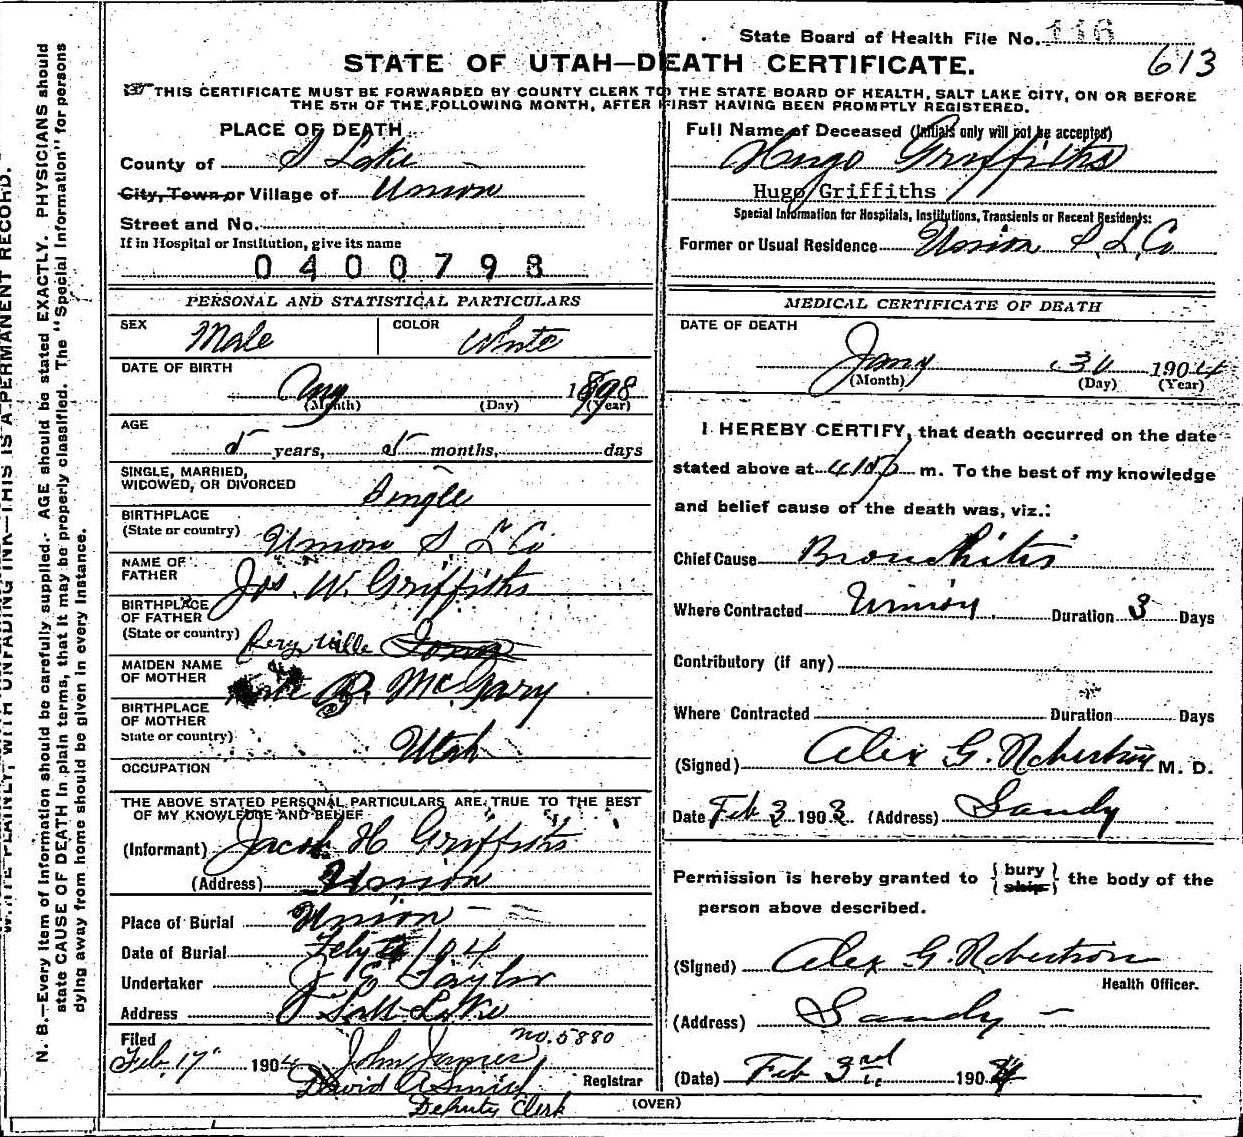 State Board of Health File No. 116
613
STATE OF UTAH—DEATH CERTIFICATE.
THIS CERTIFICATE MUST BE FORWARDED BY COUNTY CLERK TO THE STATE BOARD OF HEALTH, SALT LAKE CITY, ON OR BEFORE
THE 5TH OF THE FOLLOWING MONTH, AFTER FIRST HAVING BEEN PROMPTLY REGISTERED.
PLACE OF DEATH
County of S Lake
City, Town or Village of Union
Street and No.
If in Hospital or Institution, give its name
0400798
PERSONAL AND STATISTICAL PARTICULARS
SEX Male COLOR White
DATE OF BIRTH
Aug 1898
(Month) (Day) (Year)
AGE
5 years, 5 months, days
SINGLE, MARRIED,
WIDOWED, OR DIVORCED Single
BIRTHPLACE
(State or country) Union S L Co
NAME OF
FATHER Jos. W. Griffiths
BIRTHPLACE
OF FATHER
(State or country) ville
MAIDEN NAME
OF MOTHER McGary
BIRTHPLACE
OF MOTHER
State or country) Utah
OCCUPATION
THE ABOVE STATED PERSONAL PARTICULARS ARE TRUE TO THE BEST
OF MY KNOWLEDGE AND BELIEF
(Informant) Jacob H Griffiths
(Address) Union
Place of Burial Union
Date of Burial Feby 1904
Undertaker J E Taylor
Address Salt Lake
Filed no. 5880
Feb. 17" 1904 John James
David A Smith Registrar
Deputy Clerk
Full Name of Deceased (Initials only will not be accepted)
Hugo Griffiths
Hugo Griffiths
Special Information for Hospitals, Institutions, Transients or Recent Residents:
Former or Usual Residence Union S. L. Co
MEDICAL CERTIFICATE OF DEATH
DATE OF DEATH
Jany 30 1904
(Month) (Day) (Year)
I HEREBY CERTIFY, that death occurred on the date
stated above at m. To the best of my knowledge
and belief cause of the death was, viz.:
Chief Cause Bronchitis
Where Contracted Union Duration 3 Days
Contributory (if any)
Where Contracted Duration Days
(Signed) Alex G. Robertson M. D.
Date Feb 3 1903 (Address) Sandy
Permission is hereby granted to { bury ship } the body of the
person above described.
(Signed) Alex G. Robertson
Health Officer.
(Address) Sandy
(Date) Feb 3rd 1904
(OVER)
WRITE PLAINLY, WITH UNFADING INK—THIS IS A PERMANENT RECORD.
N. B.—Every item of information should be carefully supplied. AGE should be stated EXACTLY. PHYSICIANS should
state CAUSE OF DEATH in plain terms, that it may be properly classified. The "Special Information" for persons
dying away from home should be given in every instance.